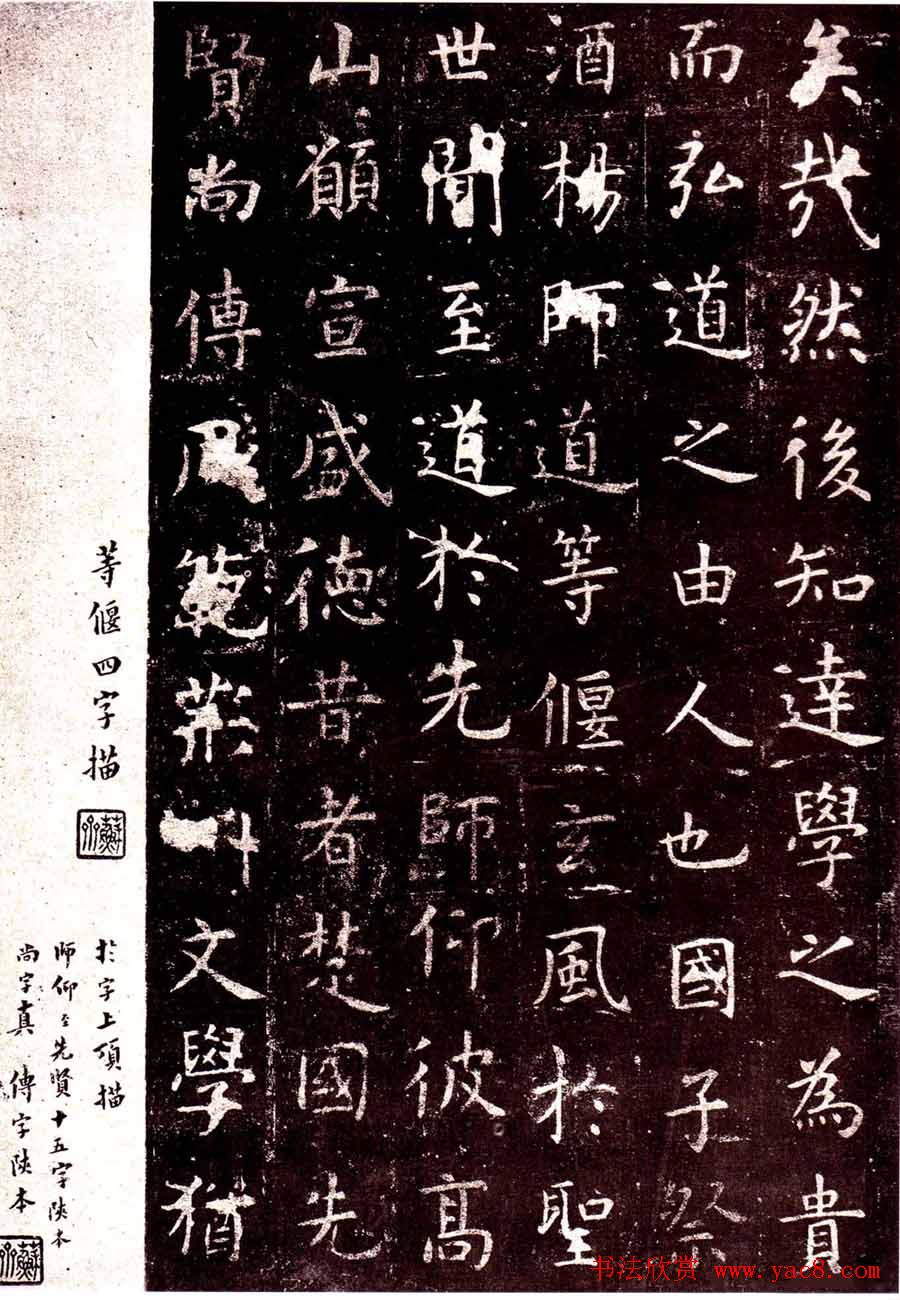 矣哉然後知達學之為貴
而弘道之由人也國子祭
酒楊師道等偃玄風於聖
世聞至道於先師仰彼高
山願宣盛德昔者楚國先
賢尚傳風範荊州文學猶
等偃四字描
於字上項描
師仰至先賢十五字陝本
尚字真 傳字陝本
书法欣赏 www.yac8.com